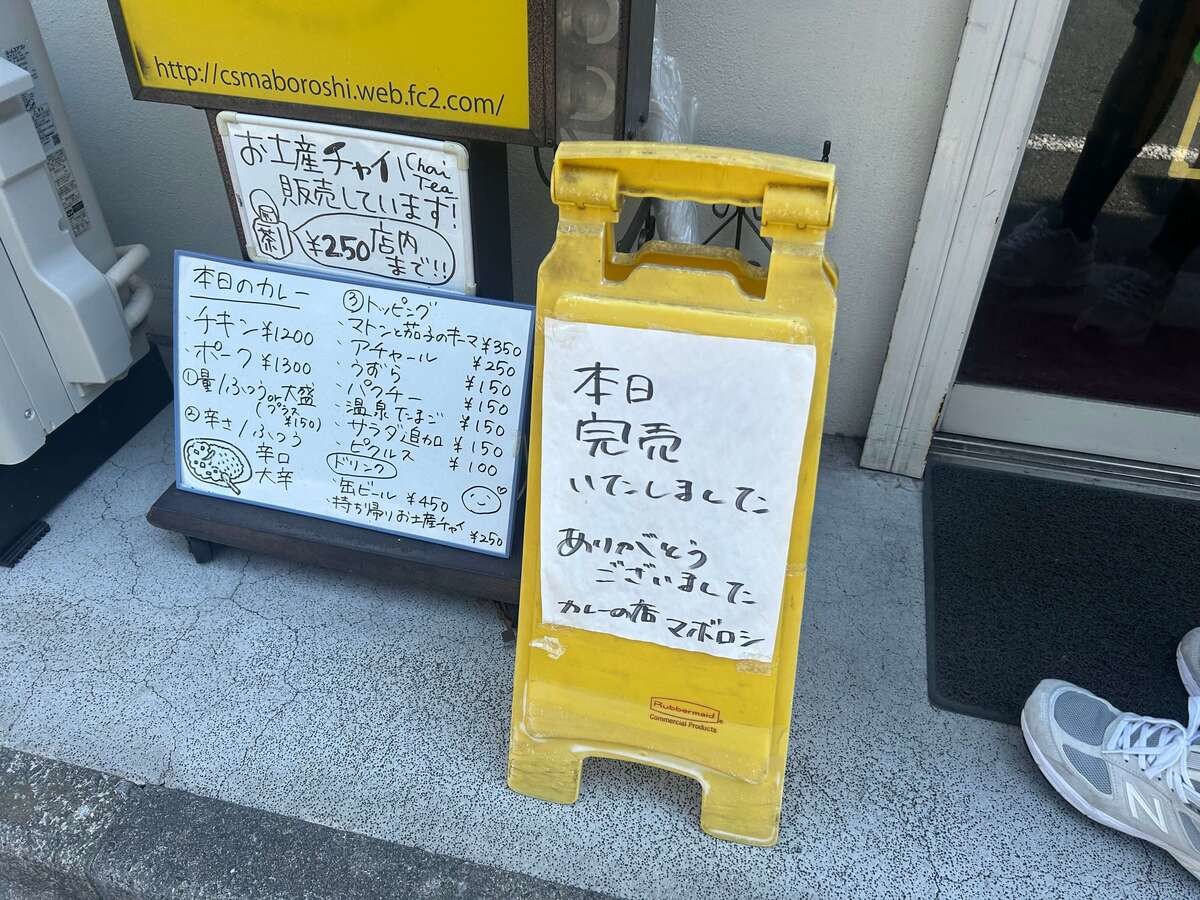 http://csmaboroshi.web.fc2.com/
お土産チャイ Chai Tea
販売しています!
茶
¥250 店内
まで!!
本日のカレー
・チキン ¥1200
・ポーク ¥1300
①量/ふつう or 大盛
(プラス
¥150)
②辛さ/ふつう
辛口
大辛
③トッピング
・マトンと茄子のキーマ ¥350
・アチャール ¥250
・うずら ¥150
・パクチー ¥150
・温泉たまご ¥150
・サラダ追加 ¥150
・ピクルス ¥100
ドリンク
・缶ビール ¥450
・持ち帰りお土産チャイ ¥250
本日
完売
いたしました
ありがとう
ございました
カレーの店 マボロシ
Rubbermaid
Commercial Products
N